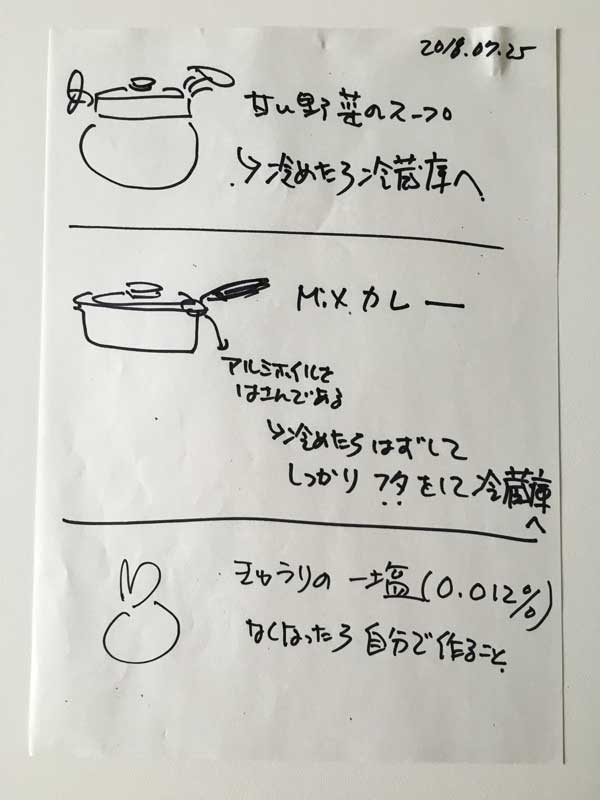 2018.07.25
甘い野菜のスープ
↳冷めたら冷蔵庫へ
Mix カレー
アルミホイルを
はさんである
↳冷めたらはずして
しっかりフタをして冷蔵庫
へ
きゅうりの一塩(0.012%)
なくなったら自分で作ること